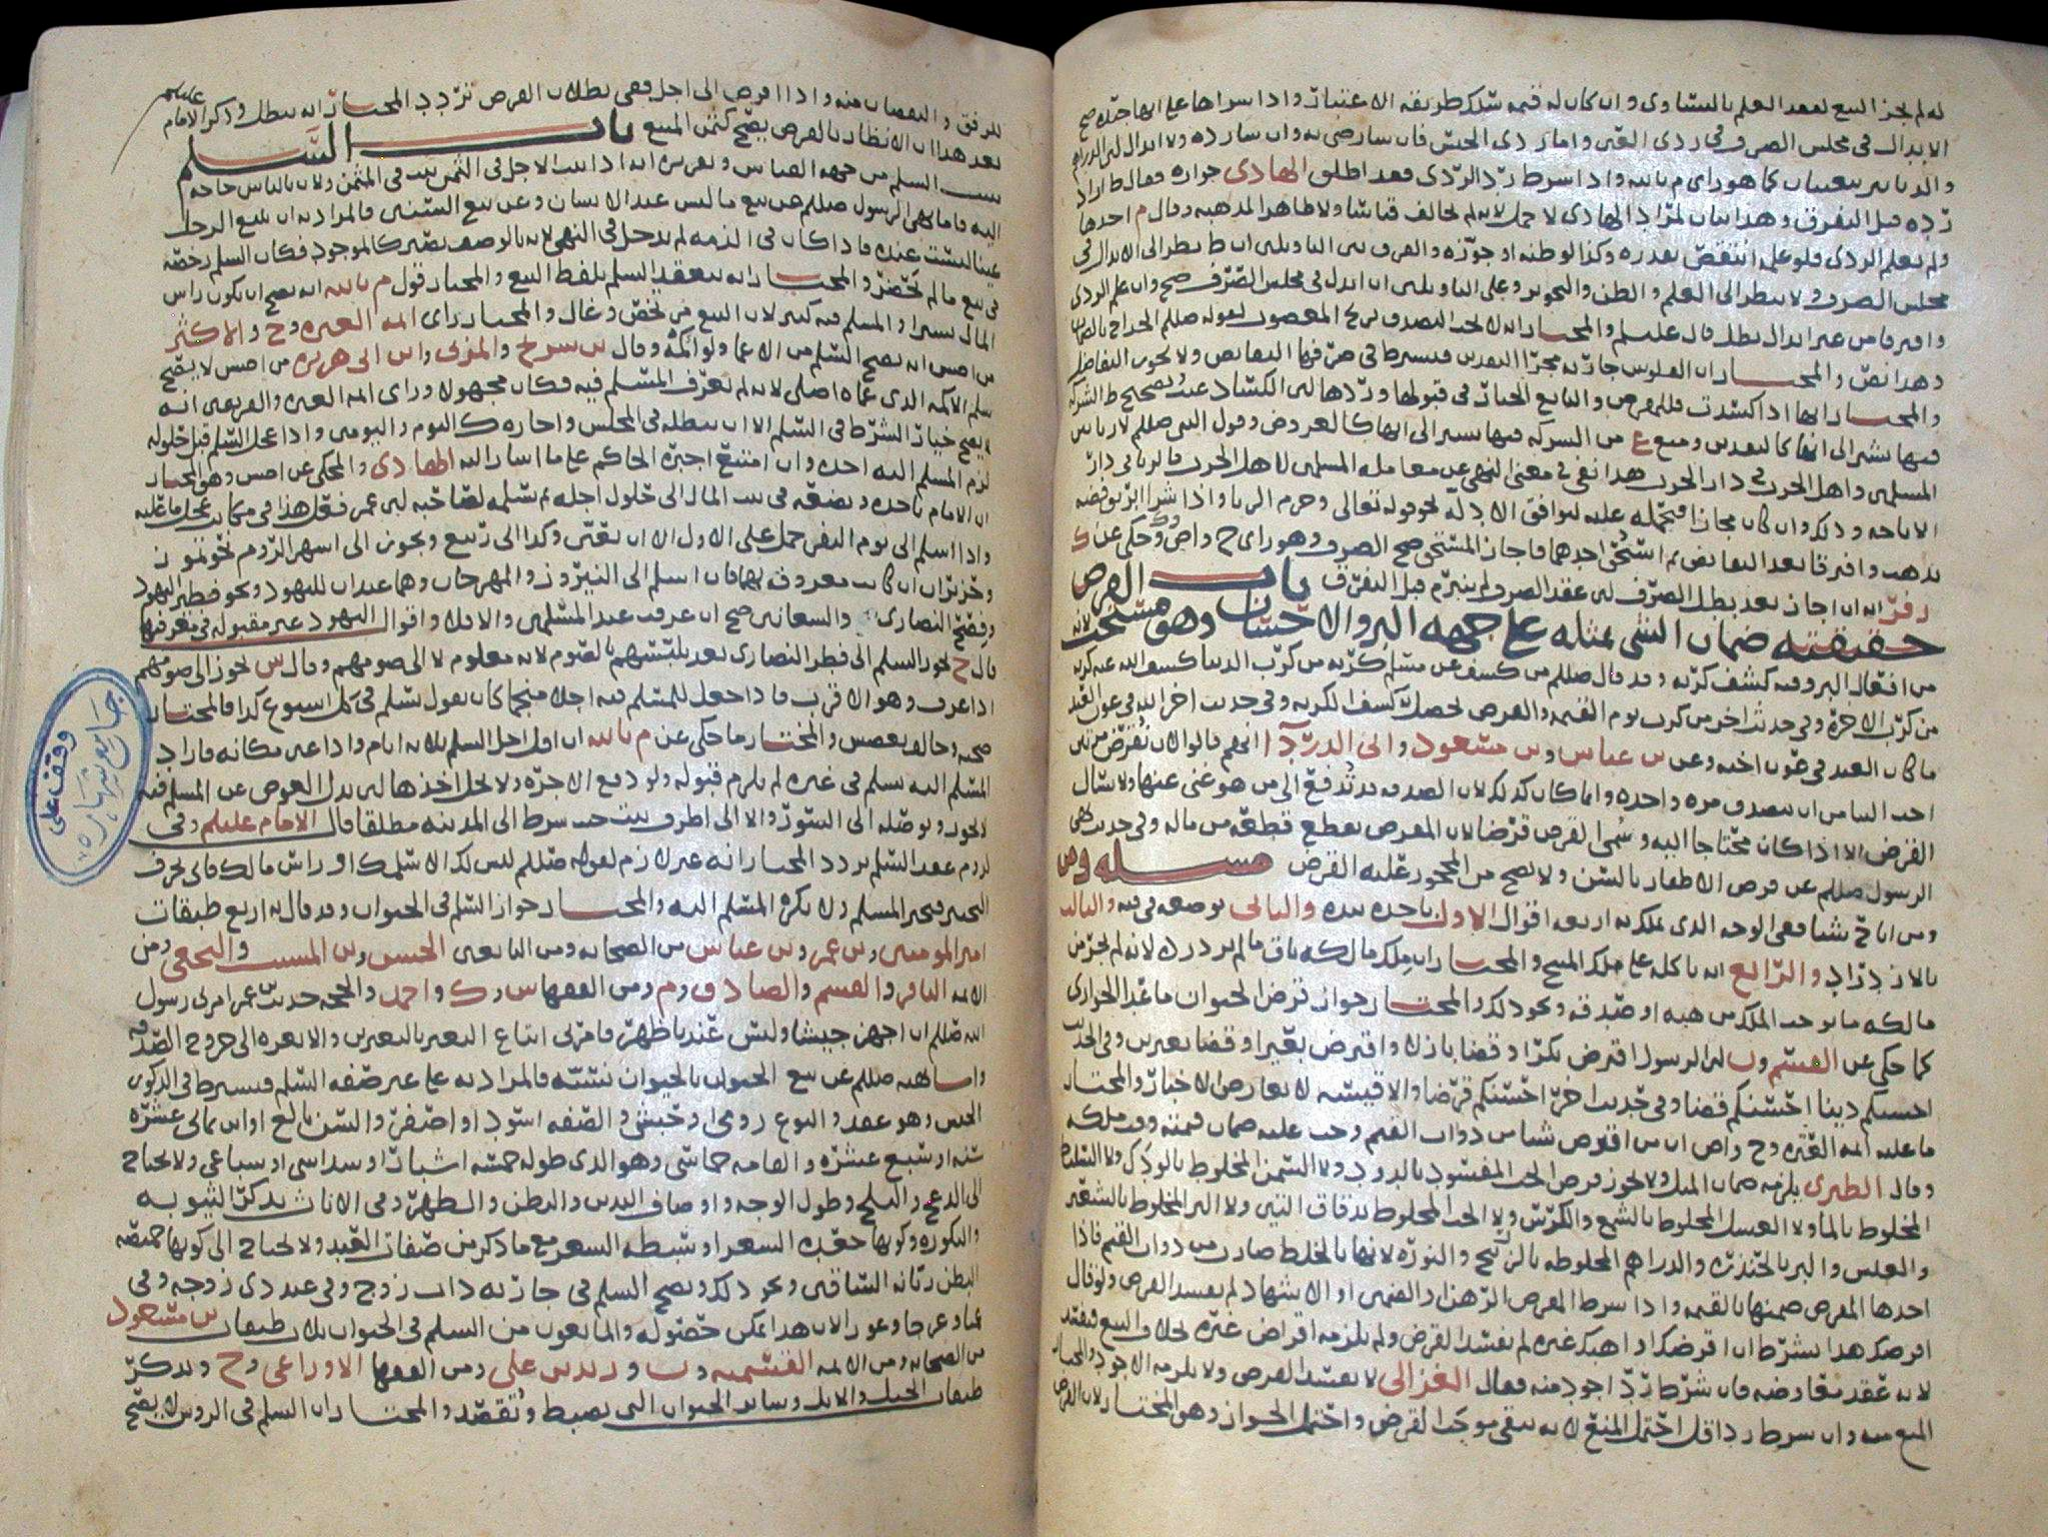 له لم يجز البيع لفقد العلم بالتساوي وان كان له قيمة سلك طريقة الاعتبار واذا شراها على انها جيدة صح
الابدال في مجلس الصرف وفي ردي العين واما ردي الجنس فان رضي به والا رده ولا ابدال لان الدراهم
والدنانير يتعينان كما هو راي م بالله واذا شرط رد الردي فقد اطلق الهادي جوازه فقال ط اراد
رده قبل التفرق وهذا بيان لمراد الهادي لا حمل لانه لم يخالف قياسا ولا ظاهر المذهب وقال م احدها
ولم يعلم الردي فلو علم انتقض بقدره وكذا لو ظنه او جوزه والفرق بين التاويلين ان ط نظر الى الابدال في
مجلس الصرف ولا ينظر الى العلم والظن والتجويز وعلى التاويلين ان ابدل في مجلس الصرف صح وان علم الردي
وافترقا من غير ابدال بطل قال عليلم والمختار انه لا يجب التصدق بربح المغصوب لقوله صللم الخراج بالضمان
وهذا نص والمختار ان الفلوس جارية مجرى النقدين فيشترط في صرفها التقابض ولا يجوز التفاضل
والمختار انها اذا كسدت فللمقرض والبايع الخيار في قبولها وردها لان الكساد عيب وتصحيح ط الشركة
فيها يشير الى انها كالنقدين ومنع ع من الشركة فيها يشير الى انها كالعروض وقول النبي صللم لا ربا بين
المسلمين واهل الحرب في دار الحرب هذا نفي في معنى النهي عن معاملة المسلمين لاهل الحرب بالربا في دار
الاباحة وذلك وان كان مجازا فيحمله عليه ليوافق الادلة نحو قوله تعالى وحرم الربا واذا شرا ابريق فضة
بذهب وافترقا بعد التقابض ثم استحق احدهما فاجاز المستحق صح الصرف وهو راي ح واص وحكي عن ك
زفر انه ان اجاز بعد بطل الصرف لان عقد الصرف لم ينبرم قبل التفرق باب القرض
حقيقته ضمان الشي بمثله على جهة البر والاحسان وهو مستحب لانه
من افعال البر وفيه كشف كربة وقد قال صللم من كشف عن مسلم كربة من كرب الدنيا كشف الله عنه كربة
من كرب الاخرة وفي حديث اخر من كرب يوم القيمة والقرض يحصل به كشف الكربة وفي حديث اخر الله في عون العبد
ما كان العبد في عون اخيه وعن س عباس وس مسعود وابي الدردا انهم قالوا لان نقرض مرتين
احب الينا من ان نتصدق مرة واحدة وانما كان كذلك لان الصدقة قد تدفع الى من هو غني عنها ولا يسال
القرض الا اذا كان محتاجا اليه وسمي القرض قرضا لان المقرض يقطع قطعة من ماله وفي حديث نهى
الرسول صللم عن قرض الاطفار بالسن ولا يصح من المحجور عليه القرض مسئله ومن
ومن اباح شيا ففي الوجه الذي يملك به اربعة اقوال الاول ياخذه بيده والثاني بوضعه في فيه والثالث
بالازدراد والرابع انه ياكله على ملك المبيح والمختار ان ملك مالكه باق ما لم يزدرده لانه لم يجر من
مالكه ما يوجب الملك من هبة او صدقة ونحو ذلك والمختار جواز قرض الحيوان ما عدا الجواري
كما حكي عن القسم ون لان الرسول اقترض بكرا وقضا بازلا واقترض بعيرا وقضا بعيرين وفي الحديث
احسنكم دينا احسنكم قضا وفي حديث اخر احسنكم قرضا والاقيسة لا تعارض الاخبار والمختار
ما عليه ائمة العترة وح واص ان من اقترض شيا من ذوات القيم وجب عليه ضمان قيمته وقت ملكه
وقال الطبري يلزمه ضمان المثل ولا يجوز قرض الحب المغشود بالبرود ولا السمن المخلوط بالودك ولا السليط
المخلوط بالما ولا العسل المخلوط بالشمع والكرش ولا الحب المخلوط بدقاق التبن ولا البر المخلوط بالشعير
والعلس والبر بالخنذرة والدراهم المخلوطة بالزيبج والنورة لانها بالخلط صارت من ذوات القيم فاذا
احدها المقرض ضمنها بالقيمة واذا شرط المقرض الرهن او الضمين او الاشهاد لم يفسد القرض ولو قال
اقرضتك هذا بشرط ان اقرضك او اهبك غيره لم يفسد القرض ولم يلزمه اقراض غيره بخلاف البيع فيفسد
لانه عقد معاوضة فان شرط رد اجود منه فقال الغزالي لا يفسد القرض ولا يلزمه الاجود والمختار
المنع منه وان شرط رد اقل احتمل المنع لانه ينفي موجب القرض واحتمل الجواز وهو المختار لان القرض
للرفق والنقصان منه واذا اقرض الى اجل ففي بطلان القرض تردد المختار انه يبطل وذكر الامام عليلم
بعد هذا ان الانظار بالقرض يصح كثمن المبيع باب السلم
يثبت السلم من جهة القياس وتقريره انه اذا ثبت الاجل في الثمن ثبت في المثمن ولان بالناس حاجة
اليه فاما نهي الرسول صللم عن بيع ما ليس عند الانسان وعن بيع السنين فالمراد به ان يبيع الرجل
عينا ليست عنده فاذا كان في الذمة لم يدخل في النهي لانه بالوصف يصير كالموجود فكان السلم رخصة
في بيع ما لم يحضر والمختار انه ينعقد السلم بلفظ البيع والمختار قول م بالله انه يصح ان يكون راس
المال يسيرا والمسلم فيه كثير لان البيع من رخص وغال والمختار راي ائمة العترة وح والاكثر
من اصش انه يصح السلم من الاعما ولو اكمه وقال س سريج والمزني واس ابي هريرة من اصش لا يصح
سلم الاكمه الذي عماه اصلي لانه لم يعرف المسلم فيه فكان مجهولا وراي ائمة العترة والفريقين انه
لا يصح خيار الشرط في السلم الا ان يبطله في المجلس واجازه ك اليوم واليومين واذا عجل السلم قبل حلوله
لزم المسلم اليه اخذه وان امتنع اجبره الحاكم على ما اشار اليه الهادي والمحكي عن اصش وهو المختار
ان الامام ياخذه ويضعه في بيت المال الى حلول اجله ثم يسلمه لصاحبه لان عمر فعل هذا في مكاتب عجل ما عليه
واذا اسلم الى يوم النفر حمل على الاول الا ان يعين وكذا الى ربيع ويجوز الى اشهر الروم نحو تموز
وحزيران ان كانت معروفة لهما فان اسلم الى النيروز والمهرجان وهما عيدان لليهود ونحو فطير اليهود
وفصح النصارى والسعانين صح ان عرفت عند المسلمين والا فلا واقوال اليهود غير مقبولة في تعريفها
قال ح يجوز السلم الى فطر النصارى بعد تلبسهم بالصوم لانه معلوم لا الى صومهم وقال س يجوز الى صومهم
اذا عرف وهو الاقرب فاذا جعل للمسلم فيه اجلا منجما كان يقول تسلم في كل اسبوع كذا فالمختار
صحته وخالف بعض ش والمختار ما حكي عن م بالله ان اقل اجل السلم ثلاثة ايام واذا عين مكانه فاراد
المسلم اليه تسلم في غيره لم يلزم قبوله ولو دفع الاجرة ولا يحل اخذها لان بدل العوض عن المسلم فيه
لا يجوز ويوصله الى السور والا الى اطرف بيت حيث شرط الى المدينة مطلقا قال الامام عليلم وفي
لزوم عقد السلم تردد المختار انه غير لازم لقوله صللم ليس لك الا سلمك او راس مالك فاتى بحرف
التخيير فيخير المسلم ولا يكره المسلم اليه والمختار جواز السلم في الحيوان وقد قال به اربع طبقات
امير المومنين وس عمر وس عباس من الصحابة ومن التابعين الحسن وس المسيب والنخعي ومن
الائمة الباقر والقسم والصادق وم ومن الفقها س وك واحمد والحجة حديث س عمر امرني رسول
الله صللم ان اجهز جيشا وليس عندنا ظهر فامرني ابتاع البعير بالبعيرين والابعرة الى خروج الصدقة
واما نهيه صللم عن بيع الحيوان بالحيوان نسيئة فالمراد به على غير صفة السلم فيشترط في الذكور
الجنس وهو عبد والنوع رومي او حبشي والصفة اسود او اصفر والسن بالغ او ابن ثماني عشرة
سنة او سبع عشرة والقامة خماسي وهو الذي طوله خمسة اشبار او سداسي او سباعي ولا يحتاج
الى الدعج والبلج وطول الوجه واوصاف اليدين والبطن والظهر وفي الاناث يذكر الثيوبة
والبكورة وكونها جعدة الشعر او سبطة الشعر مع ما ذكر من صفات العبد ولا يحتاج الى كونها خميصة
البطن ريانة الساقين ونحو ذلك ويصح السلم في جارية ذات زوج وفي عبد ذي زوجة وفي
عميا وعرجا وعورا لان هذا يمكن حصوله والمانعون من السلم في الحيوان ثلاث طبقات س مسعود
من الصحابة ومن الائمة القسمية و ن و زيد بن علي ومن الفقها الاوزاعي وح ويذكر
طبقات الخيل والابل وسائر الحيوان التي تضبط وتقصد والمختار ان السلم في الروس لا يصح
وقف على
جامع شهارة